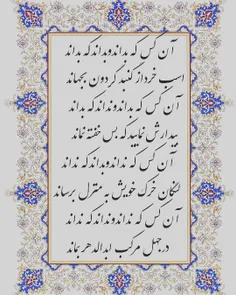 آن کس که بداند و بداند که بداند
اسب خرد از گنبد گردون بجهاند
آن کس که بداند و نداند که بداند
بیدارش نمایید که بس خفته نماند
آن کس که نداند و بداند که نداند
لنگان خرک خویش به منزل برساند
آن کس که نداند و نداند که نداند
در جهل مرکب ابدالدهر بماند